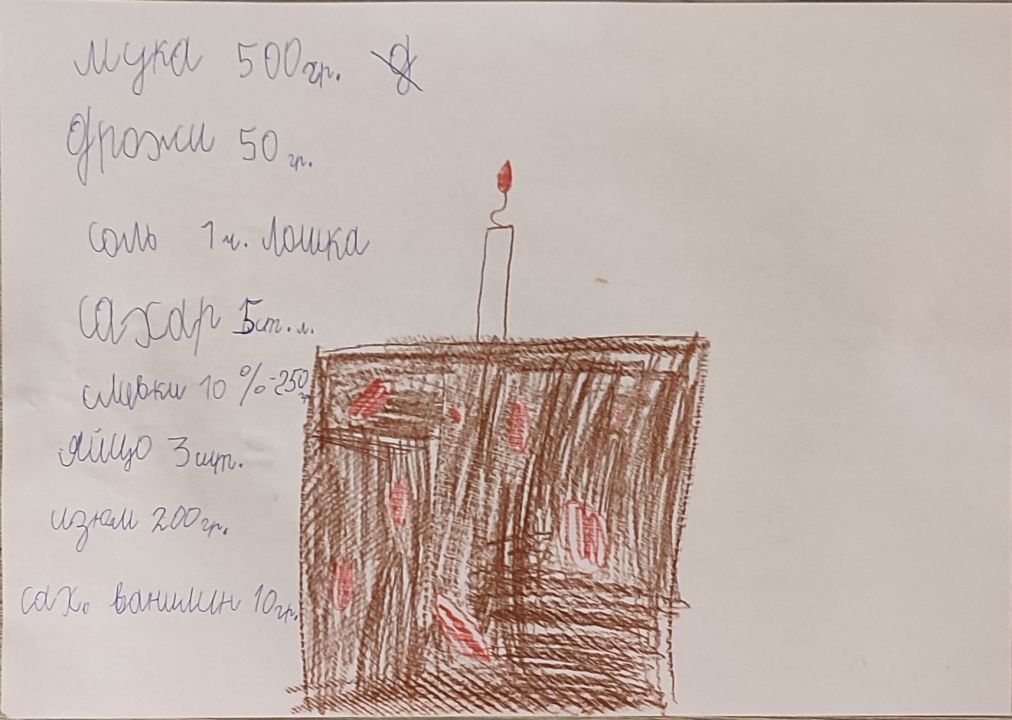 мука 500гр.
дрожи 50 гр.
соль 1 ч. лошка
сахар 5ст. л.
сливки 10 %-250 гр
яйцо 3 шт.
изюм 200гр.
сах. ванилин 10гр.